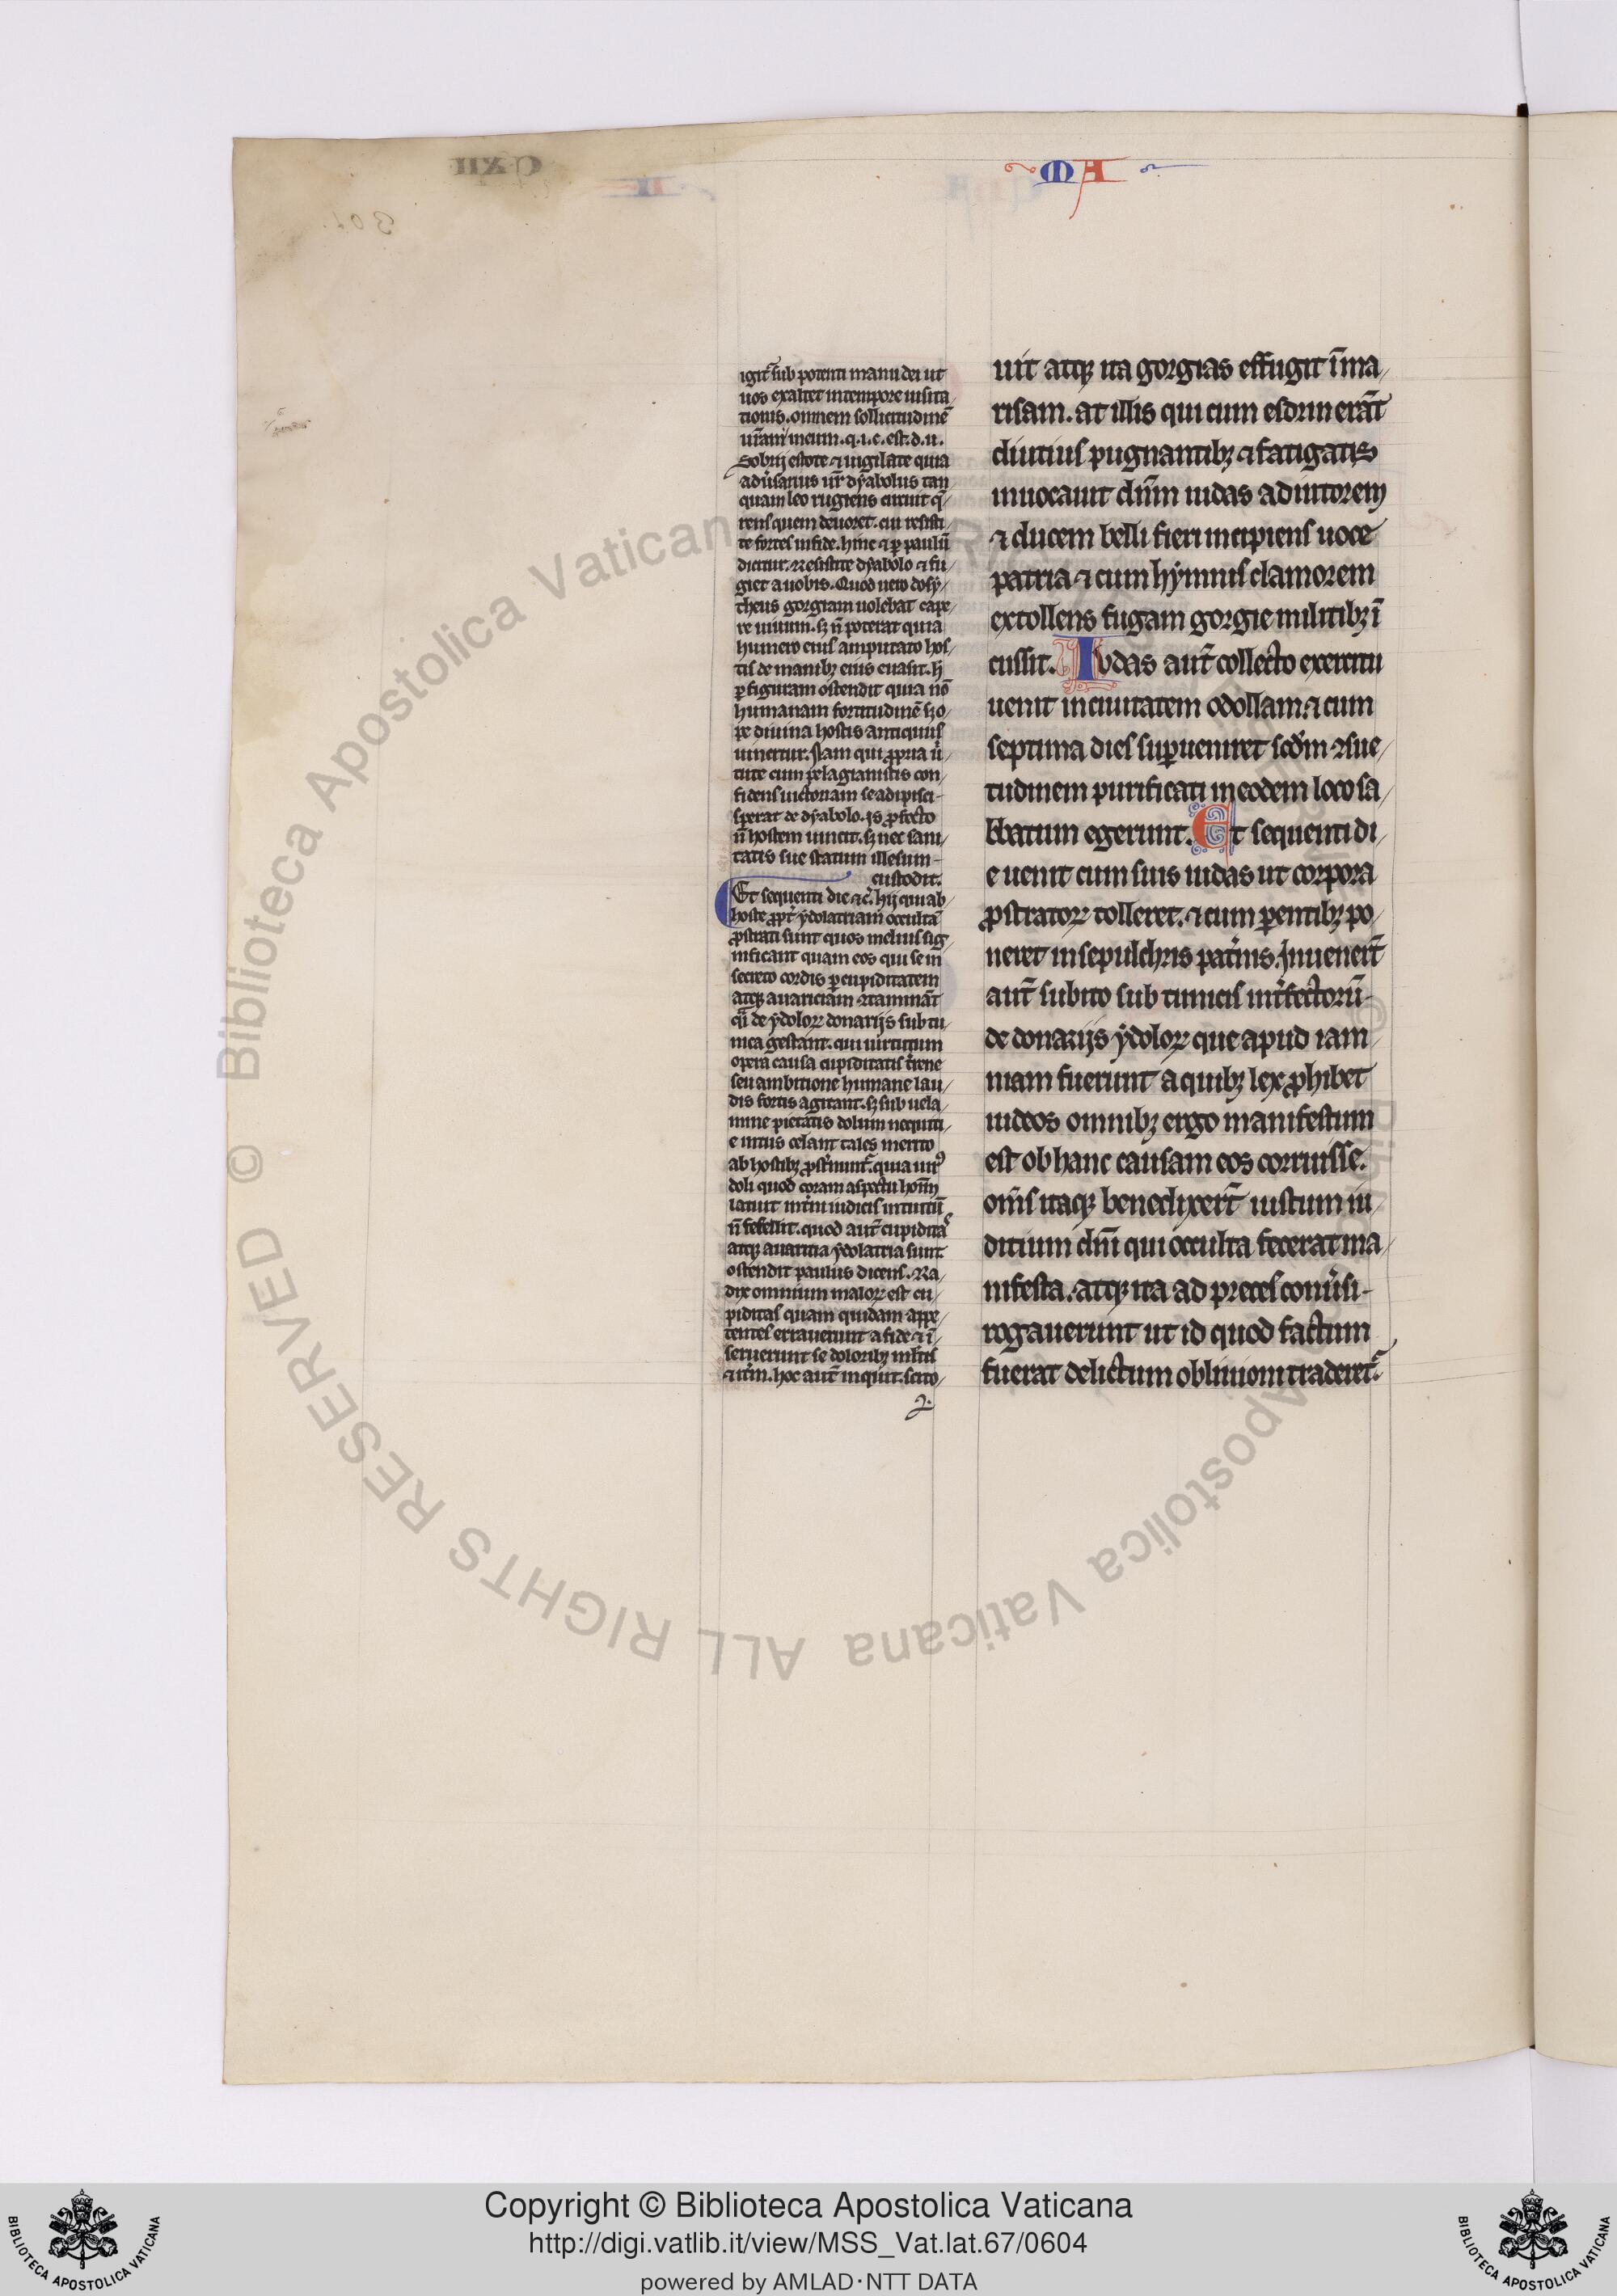 MA
igit᷑ sub potenti manu dei ut
uos exaltet in tempore uisita
tionis. omnem sollicitudinē
ur̄am in eum. q. i. c. est. d. u.
Sobrij estote ⁊ uigilate quia
adũsarius ur̄ dyabolus tan
quam leo rugiens circuit q̄
rens quem deuoret. cui resisti
te fortes in fide. hinc ⁊ ꝑ paulū
dicitur. Resistite dyabolo ⁊ fu
giet a uobis. Quod uero dosy
theus gorgiam uolebat cape
re uiuum. sꝫ n̄ poterat quia
humero eius amputato hos
tis de manibꝫ eius euasit. h̄
ꝑ figuram ostendit quia nō
humanam fortitudinē sꝫ o
pe diuina hostis antiquus
uincitur. Nam qui ꝓpria ũ
tute cum pelagianistis con
fidens uictoriam se adipisci
sperat de dyabolo. is ꝓfecto
n̄ hostem uincit. sꝫ nec sani
tatis sue statum illesum
custodit.
Et sequenti die ⁊c̄. hij qui ab
hoste ꝓpt̃ ydolatriam occultā
ꝓstrati sunt quos melius sig
nificant quam eos qui se in
secreto cordis ꝑ cupiditatem
atqꝫ auariciam ↄtamināt
q̃i de ydoloꝝ donarijs sub tu
nica gestant. qui uirtutum
opera causa cupiditatis t̃rene
seu ambitione humane lau
dis fortis agitant. sꝫ sub uela
mine pietatis dolum nequiti
e intus celant tales merito
ab hostibꝫ ꝓst̃nunt᷑. quia uirꝰ
doli quod coram aspectu hoīm
latuit int̃ni iudicis intuitū
n̄ fefellit. quod aut̄ cupidita
atqꝫ auaritia ydolatria sunt
ostendit paulus dicens. Ra
dix omnium maloꝝ est cu
piditas quam quidam appe
tentes errauerunt a fide ⁊ ī
seruerunt se doloribꝫ ml̃tis
⁊ it̃m. hoc aut̄ inquit. scito
uit atqꝫ ita gorgias effugit ī ma
risam. at illis qui cum esdrin erāt
diutius pugnantibꝫ ⁊ fatigatis
inuocauit dn̄m iudas adiutorem
⁊ ducem belli fieri incipiens uoce
patria ⁊ cum hymnis clamorem
extollens fugam gorgie militibꝫ ī
cussit. Iudas aut̄ collecto exercitu
uenit in ciuitatem odollam. ⁊ cum
septima dies suꝑueniret scd̄m ↄsue
tudinem purificati in eodem loco sa
bbatum egerunt. Et sequenti di
e uenit cum suis iudas ut corpora
ꝓstratoꝝ tolleret. ⁊ cum ꝑentibꝫ po
neret in sepulchris pat̃nis. Inuenert̄
aut̄ subito sub tunicis int̃fectorū
de donarijs ydoloꝝ que apud iam
niam fuerunt a quibꝫ lex ꝓhibet
iudeos omnibꝫ ergo manifestum
est ob hanc causam eos corruisse.
oms̄ itaqꝫ benedixert̄ iustum iu
dicium dn̄i qui occulta fecerat ma
nifesta. atqꝫ ita ad preces conũsi
rogauerunt ut id quod factum
fuerat delictum obliuioni traderet᷑.
Copyright © Biblioteca Apostolica Vaticana
http://digi.vatlib.it/view/MSS_Vat.lat.67/0604
powered by AMLAD·NTT DATA